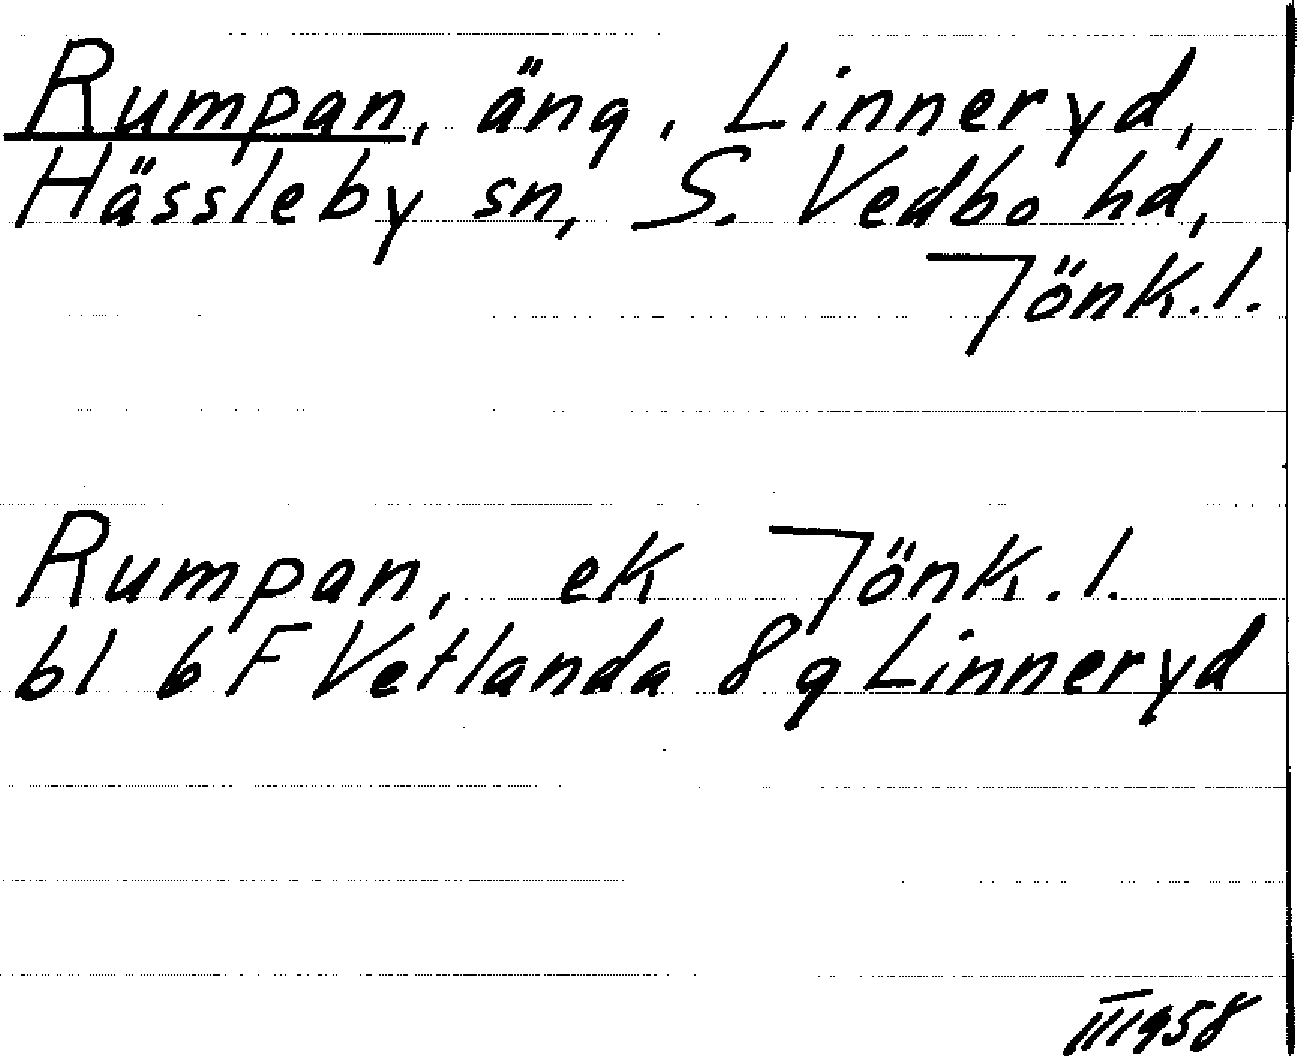 Rumpan, äng, Linneryd,
Hässleby sn, S. Vedbo hd,
Jönk.l.
Rumpan, ek Jönk.l.
bl 6 F Vetlanda 8g Linneryd
III 1958